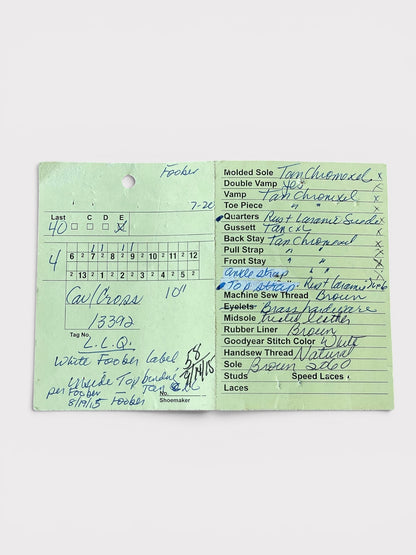 Foober
7-20
Last C D E
40 ☐ ☐ ☐ ☒
11 11
4 6 2 7 2 8 2 9 2 10 2 11 2 12 2
2 13 2 1 2 2 2 3 2 4 2 5 2
Cav/Cross 10"
13392
Tag No.
L.L.Q.
White Foober Label
Inside Top
per Foober Tan
8/19/15 Foober
58
No.
Shoemaker
Molded Sole Tan Chromexel x
Double Vamp yes x
Vamp Tan Chromexel x
Toe Piece " " x
Quarters Rust Laramie Suede x
Gusset Tan cxl x
Back Stay Tan Chromexel x
Pull Strap " " x
Front Stay " " x
Ankle strap
Top strap - Rust Laramie
Machine Sew Thread Brown
Eyelets Brass hardware
Midsole leather
Rubber Liner Brown
Goodyear Stitch Color White
Handsew Thread Natural
Sole Brown 2060
Studs Speed Laces
Laces